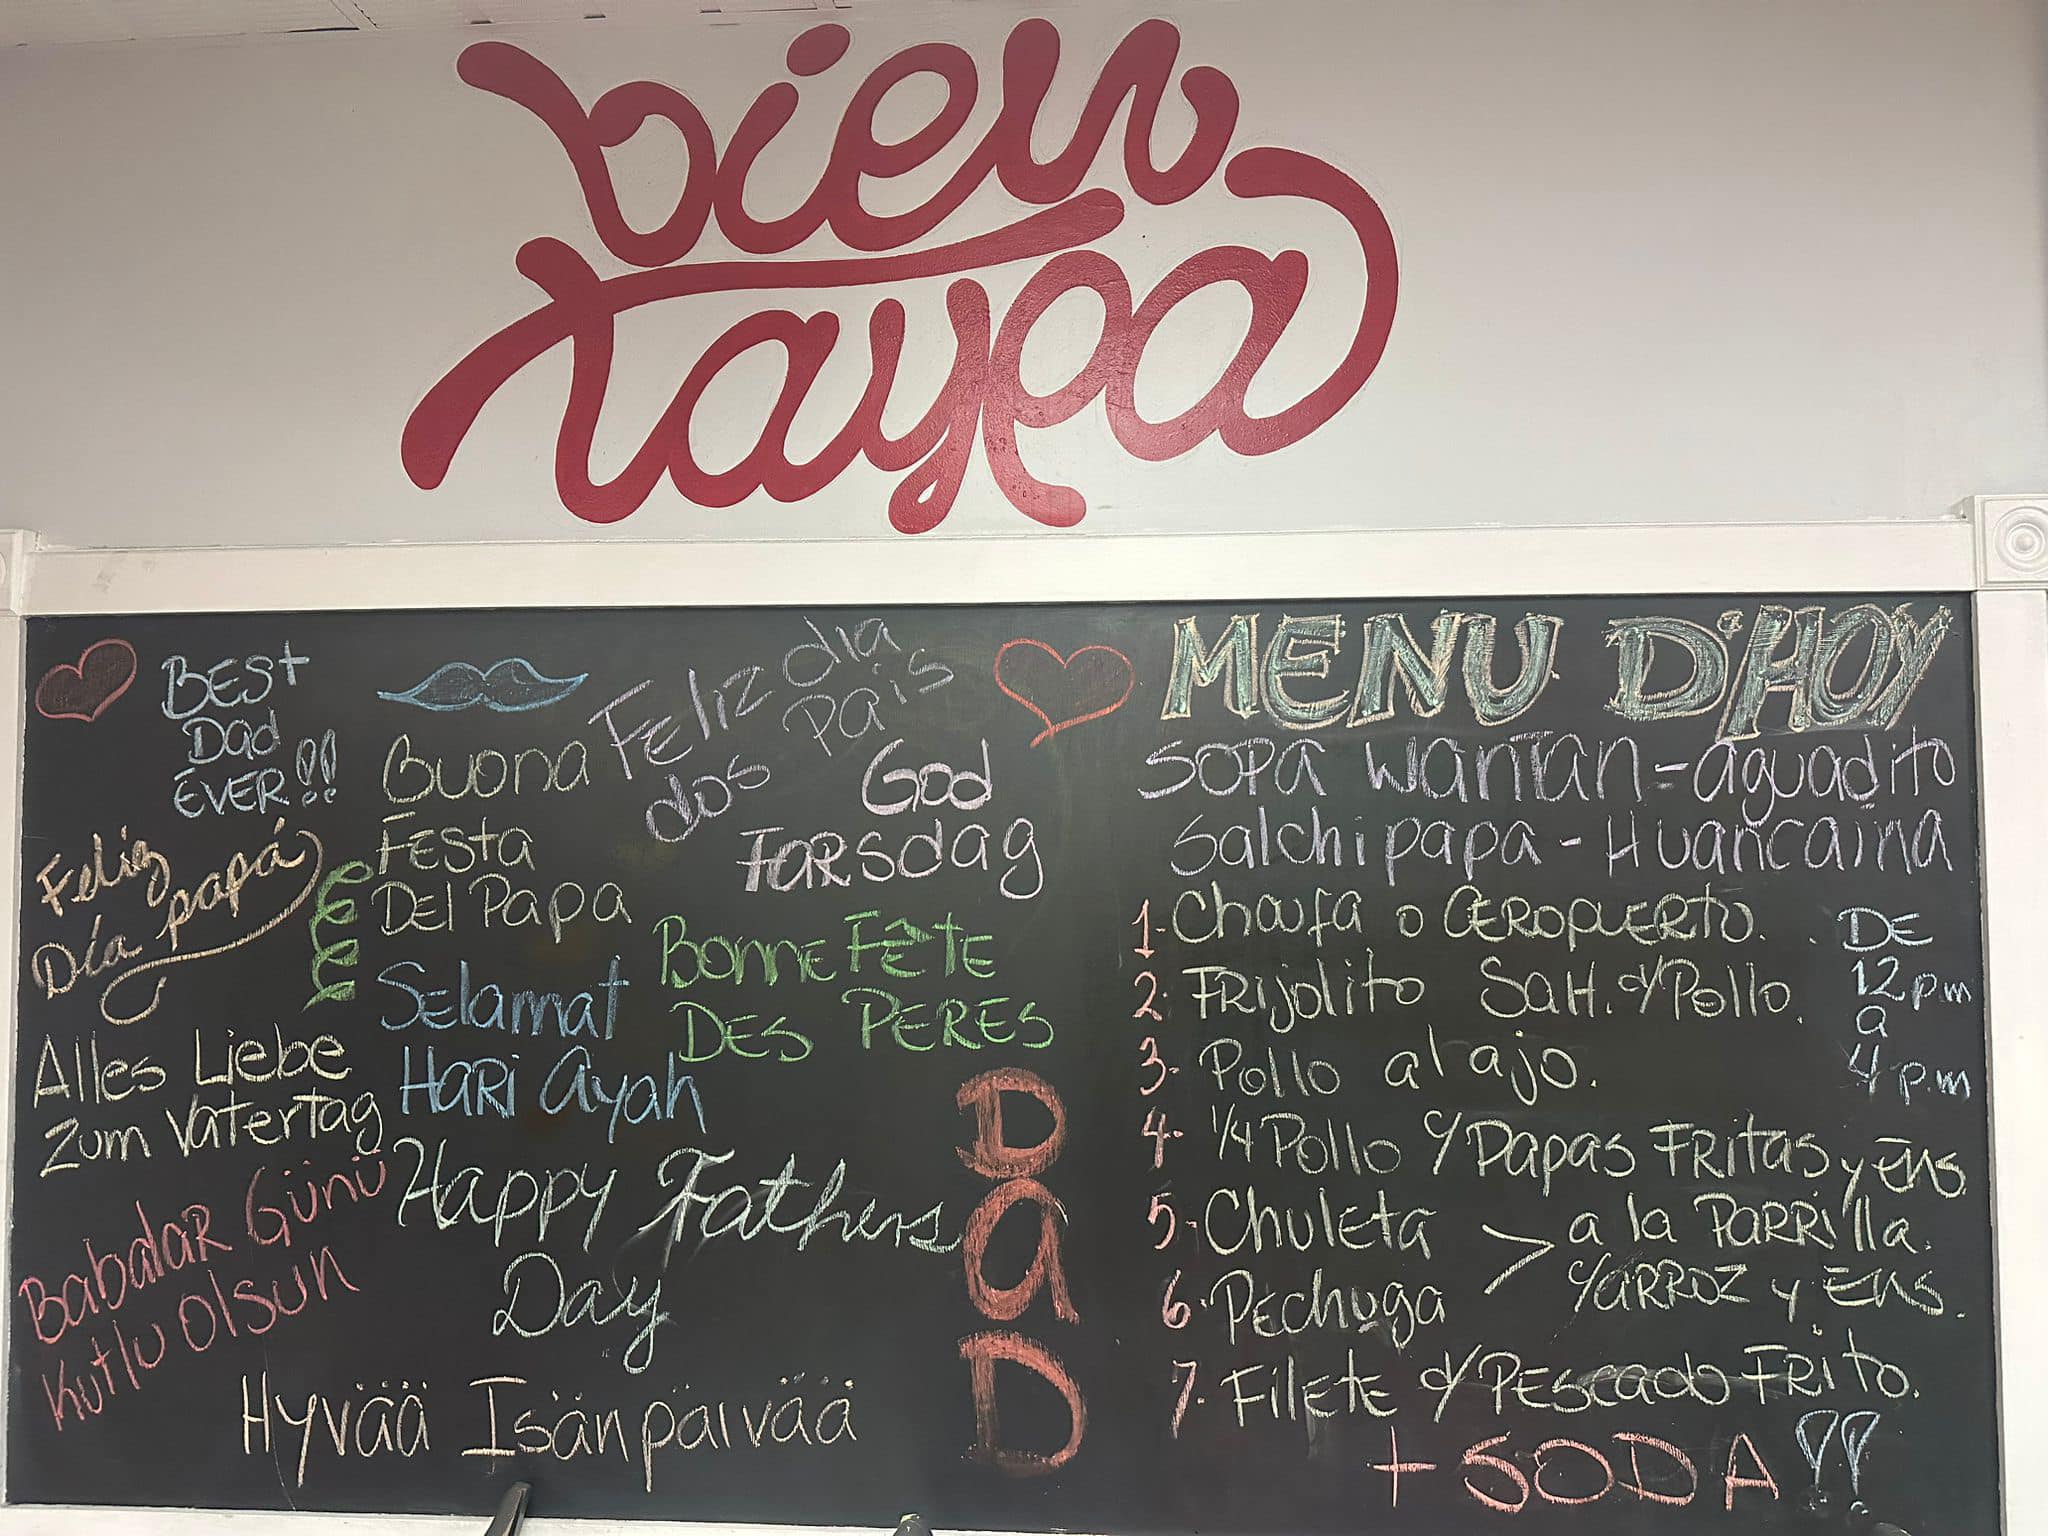 bien
taypa
BEST
Dad
EVER!!
Feliz
Día papá
Alles Liebe
Zum Vatertag
BabalaR Günü
Kutlu Olsun
Buona
FEsta
DEl Papa
Selamat
HaRi ayah
Happy Fathers
Day
Hyvää Isänpäivää
FEliz dia
dos Pais
God
FaRsdag
BonnE FÊTE
DES PERES
DaD
MENU D'HOY
SOPA WanTan - aguadito
Salchipapa - Huancaina
1- Chaufa o aEROpuERTo.
2- FRijolito Salt. d/Pollo.
3- Pollo al ajo.
4- 1/4 Pollo c/Papas FRitas y Ens
5- Chuleta > a la PaRRilla.
6- PEchuga c/aRROZ y Ens.
7- FilEtE d/PEscado FRito.
DE
12 pm
a
4 p.m
+ SODA!!